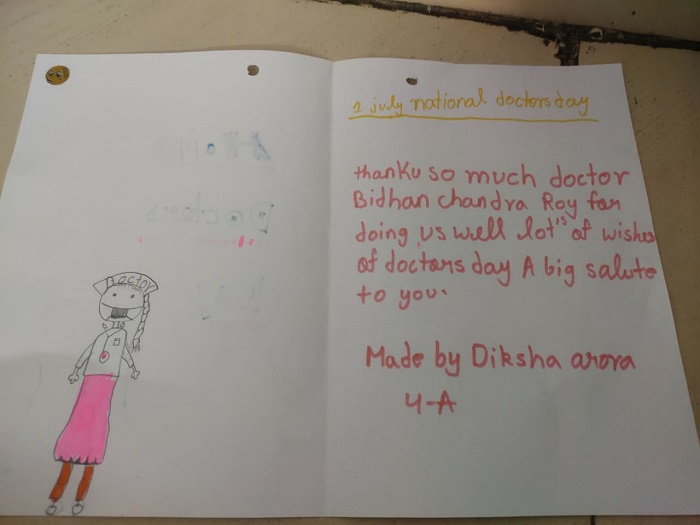 1 july national doctors day
thanku so much doctor
Bidhan chandra Roy for
doing us well lot's of wishes
of doctors day A big salute
to you.
Made by Diksha arora
4-A
Doctor
Doctors